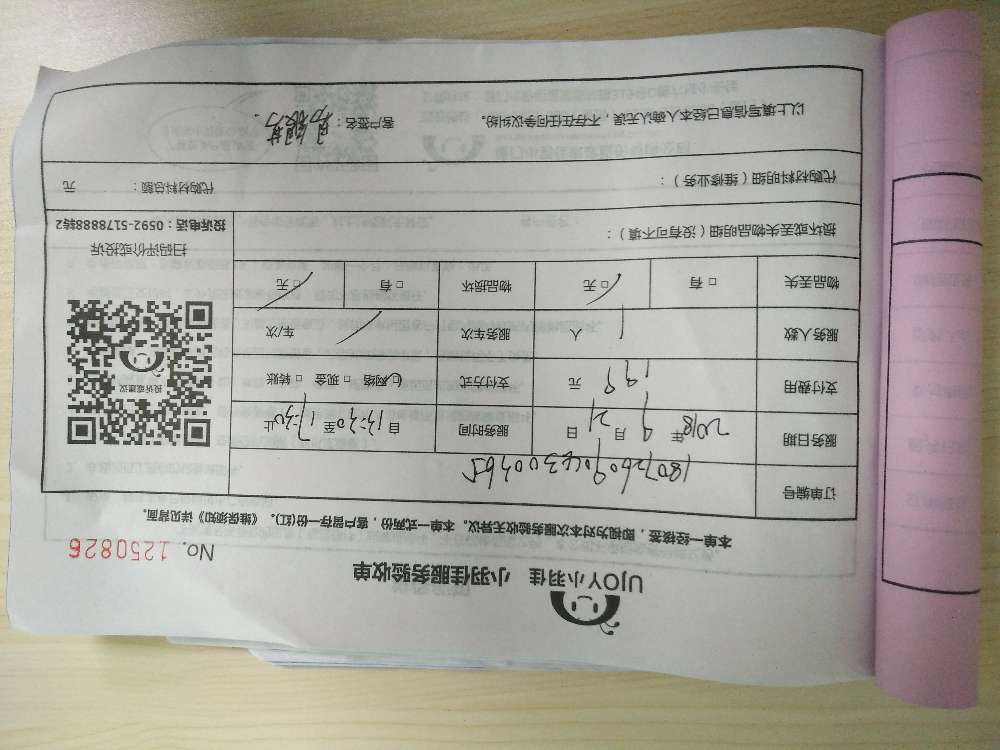 UJOY小羽佳 小羽佳服务验收单
No. 1250826
本单一经接签，即视为对本次服务验收无异议。本单一式两份，客户留存一份(红)。《维保须知》详见背面。
订单编号
服务日期 2018年9月21日 服务时间 自13:30至17:30止
支付费用 199元 支付方式 □网络 □现金 □转账
服务人数 1人 服务车次 / 车/次
物品丢失 □有 □无 物品损坏 □有 □无
投诉或建议
扫码评价或投诉
投诉电话：0592-5178888转2
损坏或丢失物品明细（没有可不填）：
代购材料明细（维修业务）： 代购材料总额： 元
以上填写信息已经本人确认无误，不存在任何争议纠纷。 客户签名：